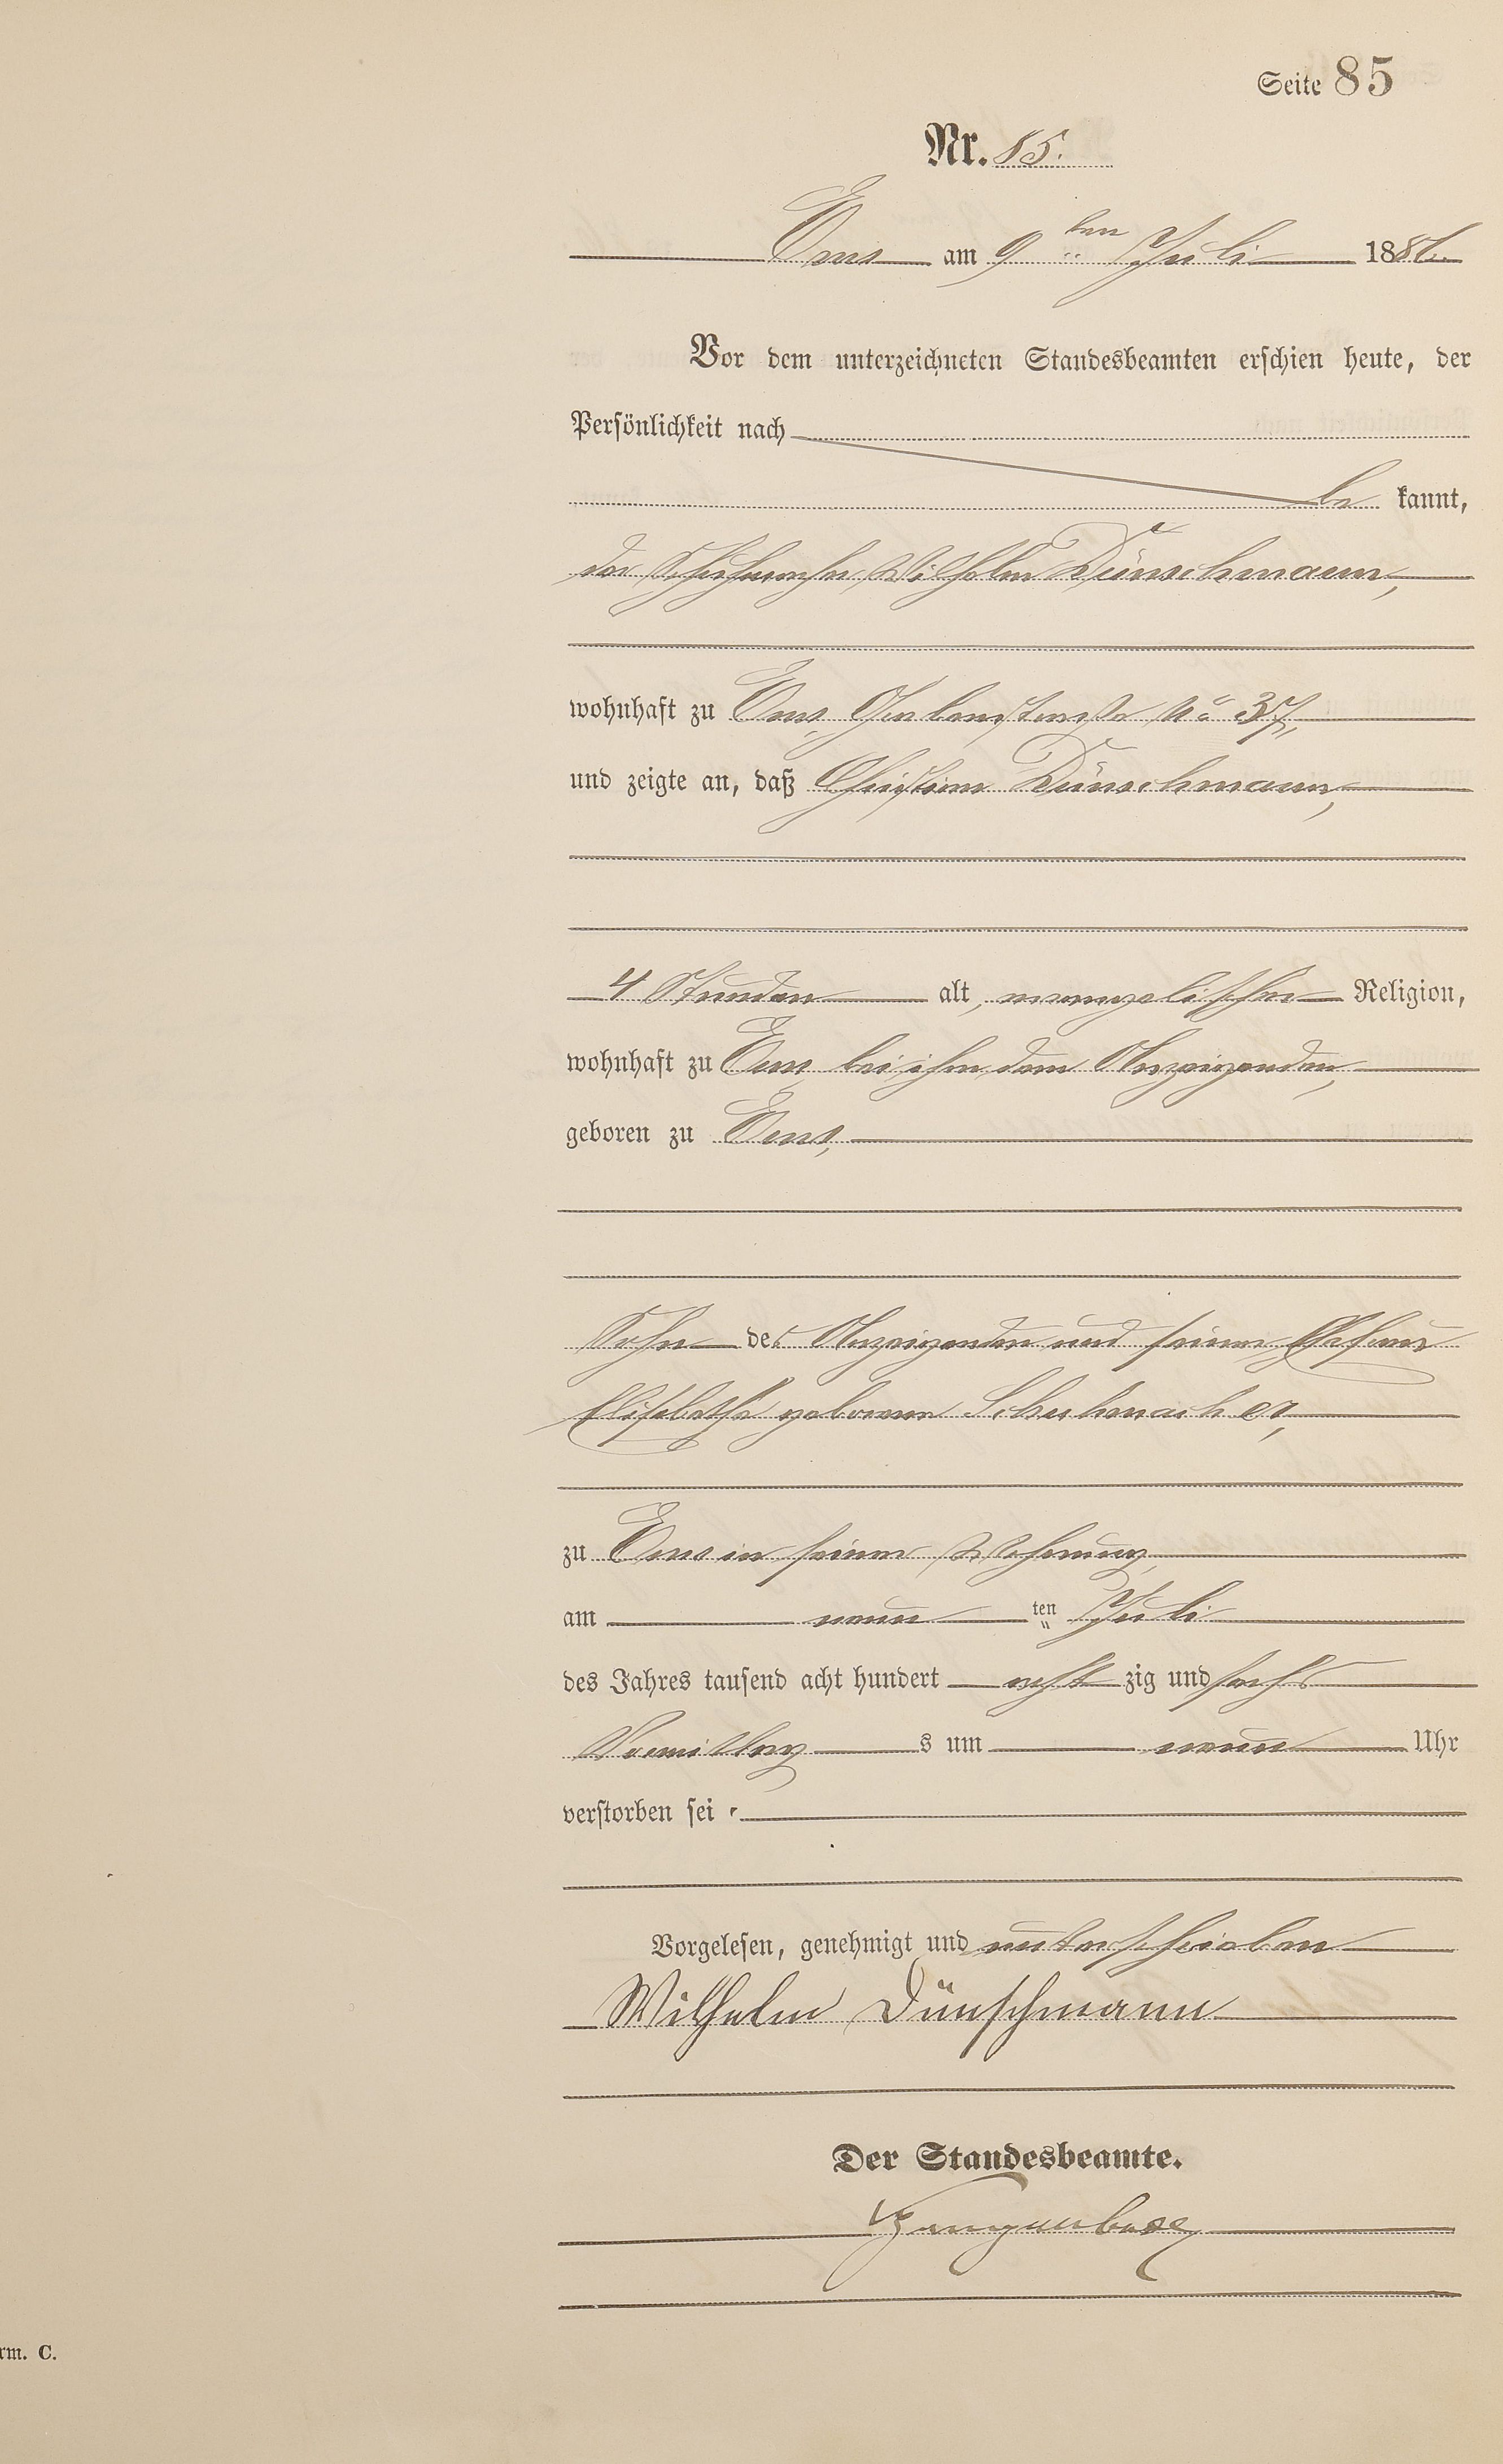 Seite 85
Nr. 85.
Ems am 9ten Juli 1886.
Vor dem unterzeichneten Standesbeamten erschien heute, der
Persönlichkeit nach
be kannt,
der Schuhmacher Wilhelm Dünschmann,
wohnhaft zu Ems, No 37,
und zeigte an, daß Christian Dünschmann,
4 Stunden alt, evangelischer Religion,
wohnhaft zu Ems bei ihm dem Anzeigenden,
geboren zu Ems,
Sohn des Anzeigenden und seiner Ehefrau
Elisabethe geborene Schuhmacher,
zu Ems in seiner Wohnung,
am neun ten Juli
des Jahres tausend acht hundert acht zig und sechs
Vormittag s um neun Uhr
verstorben sei.
Vorgelesen, genehmigt und unterschrieben
Wilhelm Dünschmann
Der Standesbeamte.
rm. C.